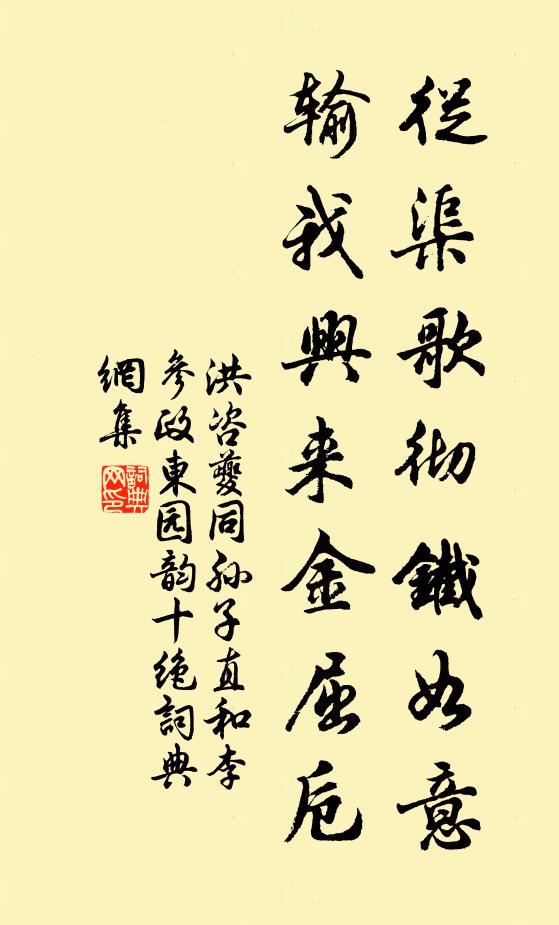 從渠歌彻鐵如意
输我興来金屈卮
洪咨夔同孙子直和李
參政東园韵十絶詞典
網集
詞典
网印